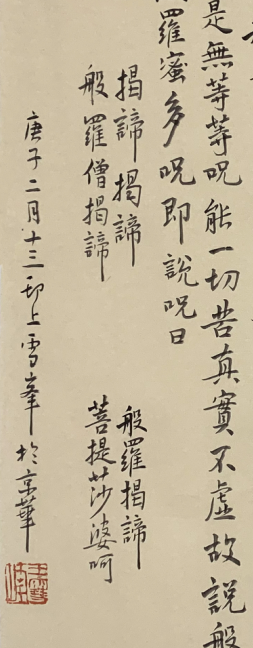 是無等等呪能一切苦真實不虛故說般
羅蜜多呪即說呪曰
揭諦揭諦
般羅揭諦
般羅僧揭諦
菩提莎婆呵
庚子二月十三邙上雪峯於京華